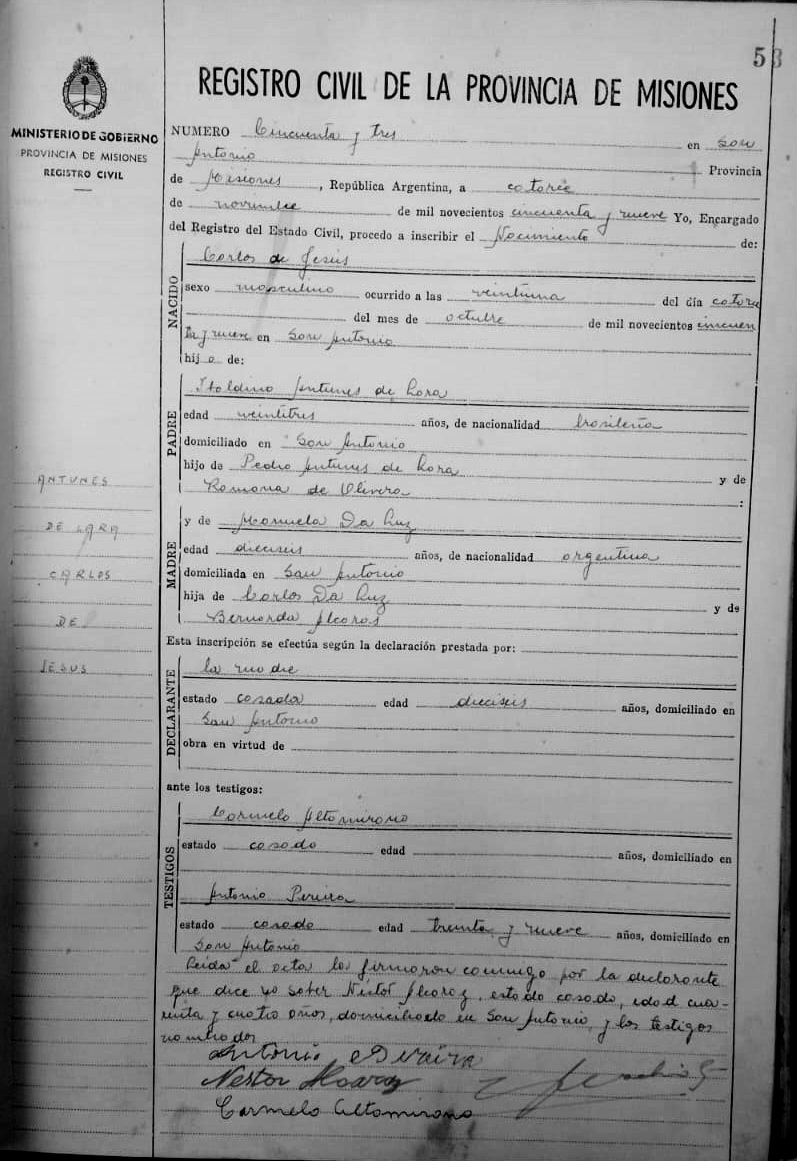 53
REGISTRO CIVIL DE LA PROVINCIA DE MISIONES
MINISTERIO DE GOBIERNO
PROVINCIA DE MISIONES
REGISTRO CIVIL
NUMERO Cincuenta y tres en San
Antonio Provincia
de Misiones, República Argentina, a catorce
de noviembre de mil novecientos cincuenta y nueve Yo, Encargado
del Registro del Estado Civil, procedo a inscribir el Nacimiento de:
NACIDO
Carlos de Jesús
sexo masculino ocurrido a las veintiuna del día catorce
del mes de octubre de mil novecientos cincuen
ta y nueve en San Antonio
hijo de:
PADRE
Antunes de Lara
edad veintitres años, de nacionalidad brasileña
domiciliado en San Antonio
hijo de Pedro Antunes de Lara y de
Ramona de Olivera :
MADRE
y de Manuela Da Luz
edad dieciseis años, de nacionalidad argentina
domiciliada en San Antonio
hija de Carlos Da Luz y de
Bernarda Alcaras
ANTUNES
DE LARA
CARLOS
DE
JESUS
Esta inscripción se efectúa según la declaración prestada por:
DECLARANTE
la madre
estado casada edad dieciseis años, domiciliado en
San Antonio
obra en virtud de
ante los testigos:
TESTIGOS
Carmelo Altamirano
estado casado edad años, domiciliado en
Antonio Pereira
estado casado edad treinta y nueve años, domiciliado en
San Antonio
Leida el acta la firmaron conmigo por la declarante
que dice no saber Néstor Alcaraz, estado casado, edad cua-
renta y cuatro años, domiciliado en San Antonio, y los testigos
nombrados
Antonio Peraira
Nestor Alcaraz
Carmelo Altamirano